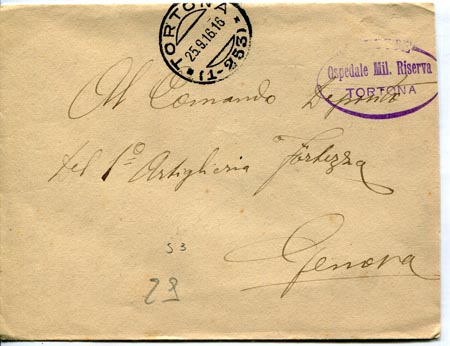 TORTONA
25.9.16.16
*(1-253)*
Ospedale Mil. Riserva
TORTONA
Al Comando Deposito
del 1º Artiglieria Fortezza
Genova
53
29